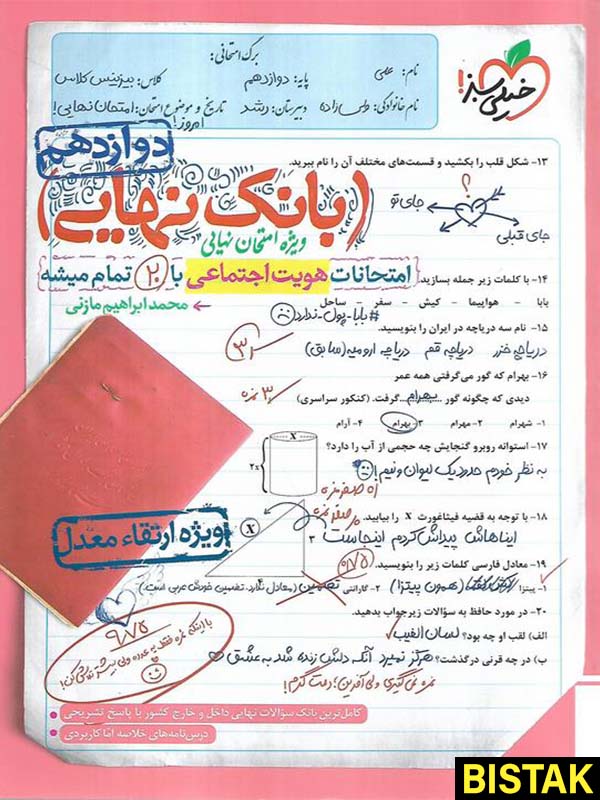 خیلی سبز!
برگ امتحانی:
نام: علی
پایه: دوازدهم
کلاس: بیزینس کلاس
نام خانوادگی: ولی‌زاده
دبیرستان: رشد
تاریخ و موضوع امتحان: امتحان نهایی!
امروز!
دوازدهم
۱۳- شکل قلب را بکشید و قسمت‌های مختلف آن را نام ببرید.
؟
جای تو
جای قبلی
(بانک نهایی)
ویژه امتحان نهایی
۱۴- با کلمات زیر جمله بسازید.
امتحانات هویت اجتماعی با ۲۰ تمام میشه
بابا - هواپیما - کیش - سفر - ساحل
محمد ابراهیم مازنی
#بابا-پول-ندارد
۱۵- نام سه دریاچه در ایران را بنویسید.
دریاچه خزر دریاچه قم دریاچه ارومیه (سابق)
۱۶- بهرام که گور می‌گرفتی همه عمر
دیدی که چگونه گور بهرام گرفت. (کنکور سراسری)
۳ نمره
۱- شهرام ۲- مهرام ۳- بهرام ۴- آرام
۱۷- استوانه روبرو گنجایش چه حجمی از آب را دارد؟
X
2X
به نظر خودم حدود یک لیوان و نیم!
صفر نمره
۱۸- با توجه به قضیه فیثاغورت X را بیابید.
X
۳
۴
ایناهاش پیداش کردم اینجاست
صفر نمره
ویژه ارتقاء معدل
۱۹- معادل فارسی کلمات زیر را بنویسید.
۰/۷۵
۱- پیتزا (همون پیتزا) ۲- گارانتی تضمین (معادل ندارد، تضمین خودش عربی است)
۲۰- در مورد حافظ به سؤالات زیر جواب بدهید.
الف) لقب او چه بود؟ لسان الغیب
ب) در چه قرنی درگذشت؟ هرگز نمیرد آنکه دلش زنده شد به عشق
نمره نمی‌گیری ولی آفرین! دمت گرم!
۹/۷۵
کامل‌ترین بانک سؤالات نهایی داخل و خارج کشور با پاسخ تشریحی
درس‌نامه‌های خلاصه اما کاربردی
BISTAK